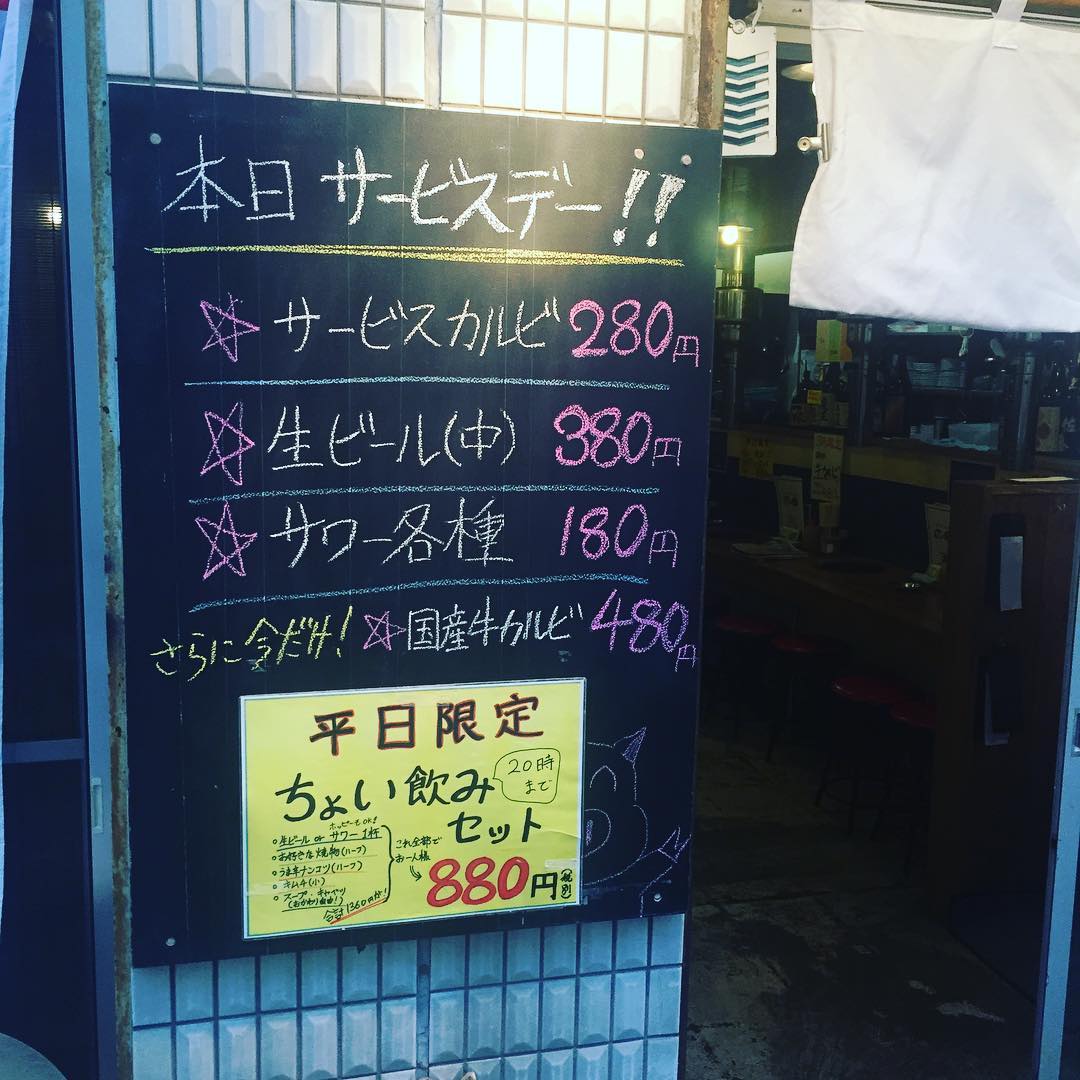 本日 サービスデー!!
☆ サービスカルビ 280円
☆ 生ビール(中) 380円
☆ サワー各種 180円
さらに今だけ! ☆国産牛カルビ 480円
平日限定
ちょい飲みセット
20時まで
ホッピーもOK!
○生ビール or サワー 1杯
○お好きな焼物(ハーフ)
○うま辛ナンコツ(ハーフ)
○キムチ(小)
○スープ・キャベツ
(おかわり自由!)
合計1360円が!
これ全部で
お一人様
880円(税別)